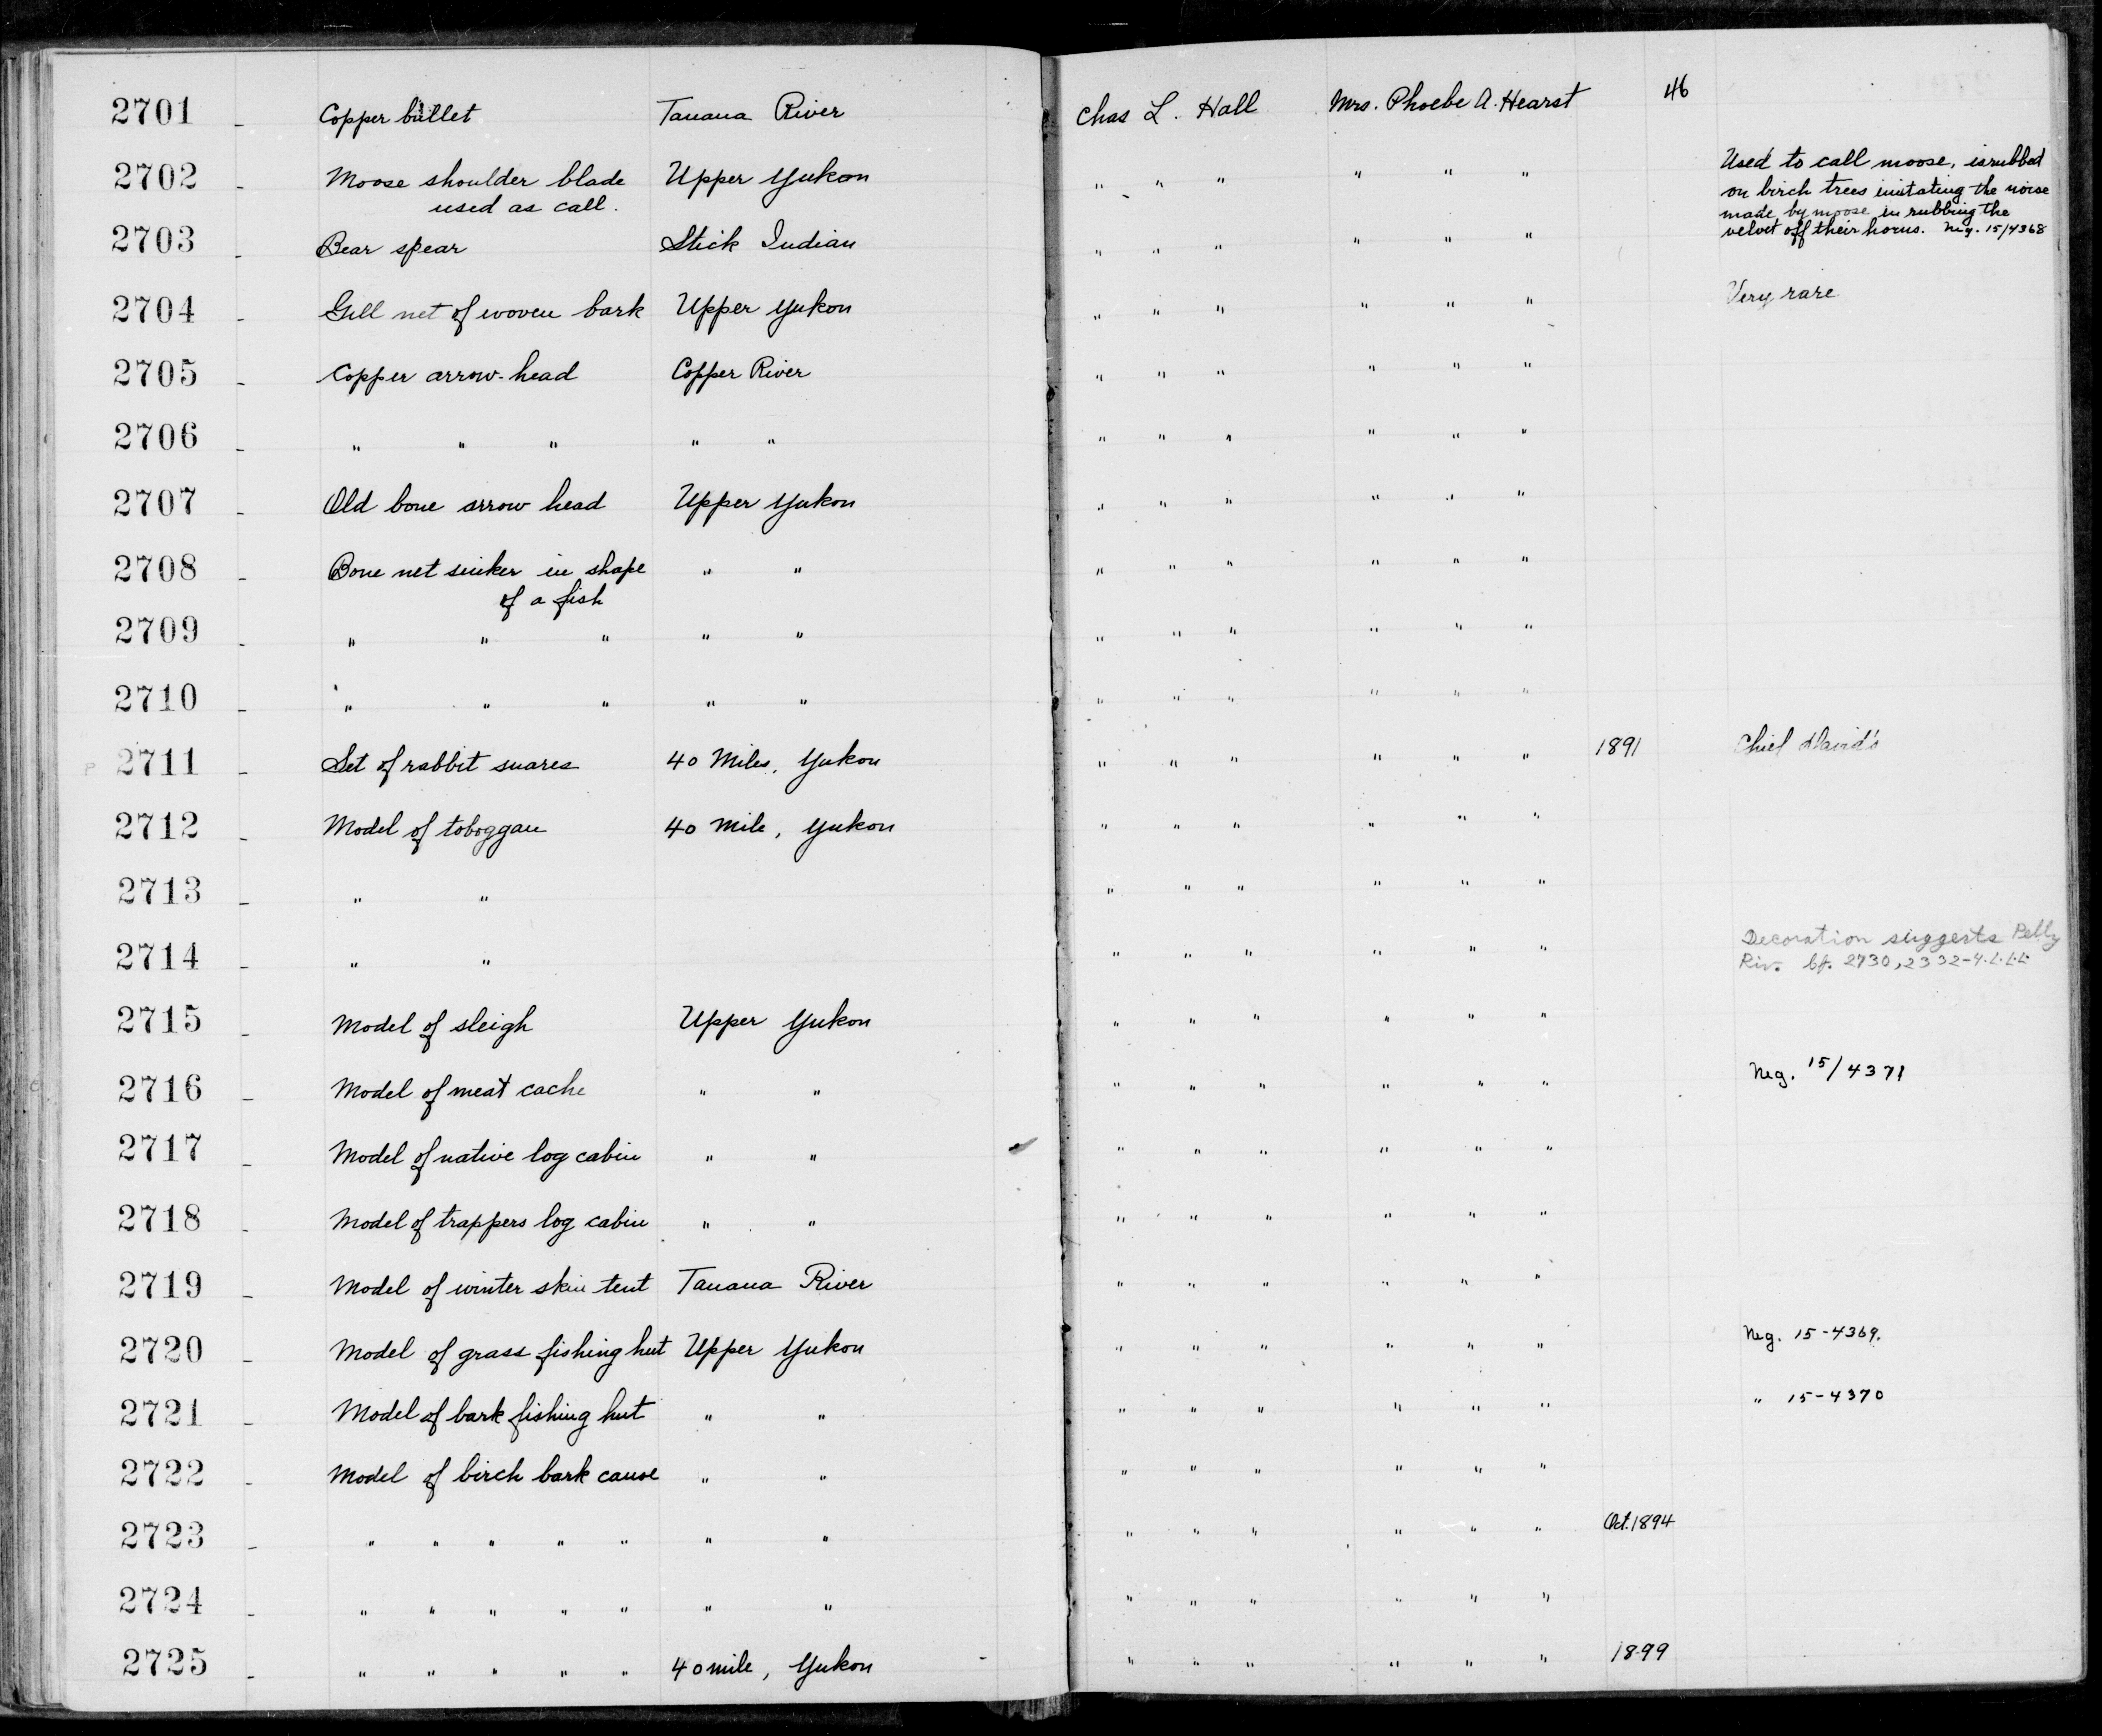 2701 - Copper bullet Tanana River Chas L. Hall Mrs. Phoebe A. Hearst 46
2702 - Moose shoulder blade Upper Yukon " " " " " " Used to call moose, is rubbed
used as call. on birch trees imitating the noise
made by moose in rubbing the
2703 - Bear spear Stick Indian " " " " " " velvet off their horns. Neg. 15/4368
2704 - Gill net of woven bark Upper Yukon " " " " " " Very rare
2705 - Copper arrow-head Copper River " " " " " "
2706 - " " " " " " " " " " "
2707 - Old bone arrow head Upper Yukon " " " " " "
2708 - Bone net sinker in shape " " " " " " " "
of a fish
2709 - " " " " " " " " " " "
2710 - " " " " " " " " " " "
2711 - Set of rabbit snares 40 Miles, Yukon " " " " " " 1891 Chief David's
2712 - Model of toboggan 40 Mile, Yukon " " " " " "
2713 - " " " " " " " "
2714 - " " " " " " " " Decoration suggests Pelly
Riv. cf. 2730, 2332-4. L.L.L.
2715 - Model of sleigh Upper Yukon " " " " " "
2716 - Model of meat cache " " " " " " " " Neg. 15/4371
2717 - Model of native log cabin " " " " " " " "
2718 - Model of trappers log cabin " " " " " " " "
2719 - Model of winter skin tent Tanana River " " " " " "
2720 - Model of grass fishing hut Upper Yukon " " " " " " Neg. 15-4369.
2721 - Model of bark fishing hut " " " " " " " " " 15-4370
2722 - Model of birch bark canoe " " " " " " " "
2723 - " " " " " " " " " " " " " Oct. 1894
2724 - " " " " " " " " " " " " "
2725 - " " " " " 40 mile, Yukon " " " " " " 1899